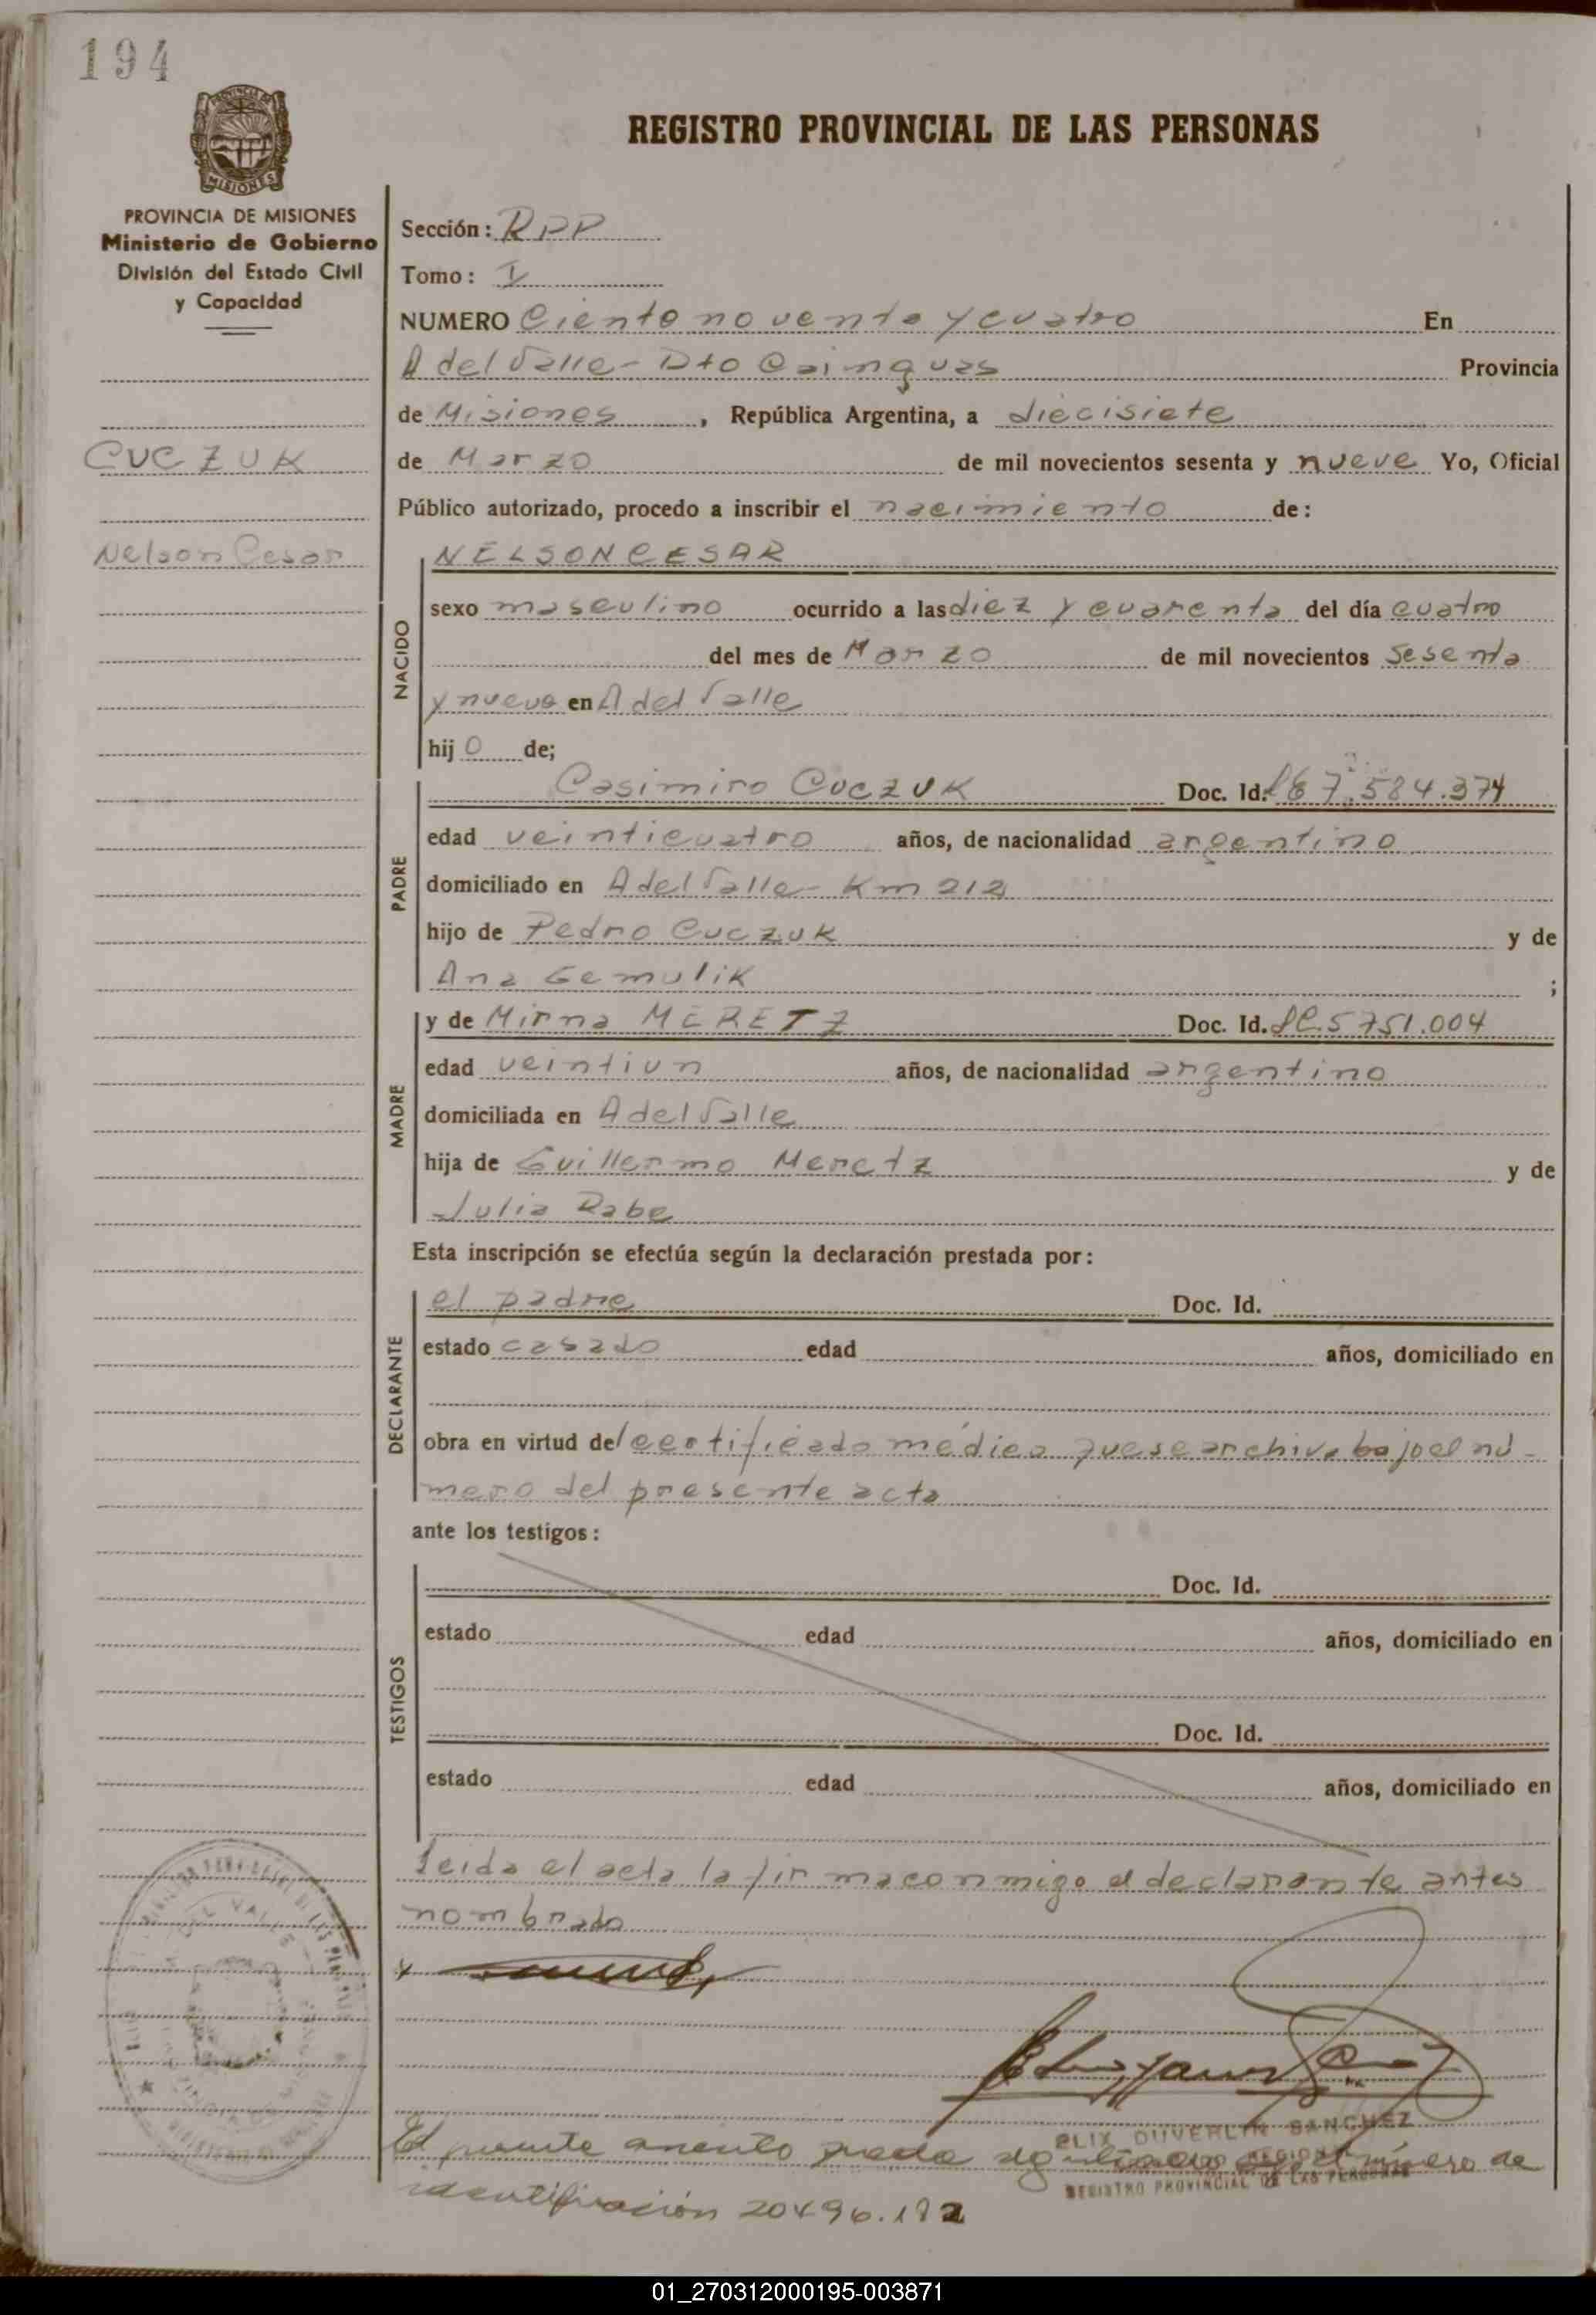 194
REGISTRO PROVINCIAL DE LAS PERSONAS
MISIONES
PROVINCIA DE MISIONES
Ministerio de Gobierno
División del Estado Civil
y Capacidad
CUCZUK
Nelson Cesar
Sección: RPP
Tomo: I
NUMERO Ciento noventa y cuatro En
A del Valle - Dto Cainguas Provincia
de Misiones, República Argentina, a diecisiete
de Marzo de mil novecientos sesenta y nueve Yo, Oficial
Público autorizado, procedo a inscribir el nacimiento de:
NACIDO
NELSON CESAR
sexo masculino ocurrido a las diez y cuarenta del día cuatro
del mes de Marzo de mil novecientos sesenta
y nueve en A del Valle
hijo de;
PADRE
Casimiro CUCZUK Doc. Id. 7.584.374
edad veinticuatro años, de nacionalidad argentino
domiciliado en A del Valle - Km 212
hijo de Pedro Cuczuk y de
Ana Gemulik ;
MADRE
y de Mirna MERETZ Doc. Id. LC.5751.004
edad veintiun años, de nacionalidad argentino
domiciliada en A del Valle
hija de Guillermo Meretz y de
Julia Rabe
Esta inscripción se efectúa según la declaración prestada por:
DECLARANTE
el padre Doc. Id.
estado casado edad años, domiciliado en
obra en virtud del certificado médico que se archiva bajo el nú-
mero del presente acta
ante los testigos:
TESTIGOS
Doc. Id.
estado edad años, domiciliado en
Doc. Id.
estado edad años, domiciliado en
Leida el acta la firma conmigo el declarante antes
nombrado
DUVERLIN SANCHEZ
REGISTRO PROVINCIAL DE LAS PERSONAS
El presente asiento queda el número de
identificación 20496.182
01_270312000195-003871